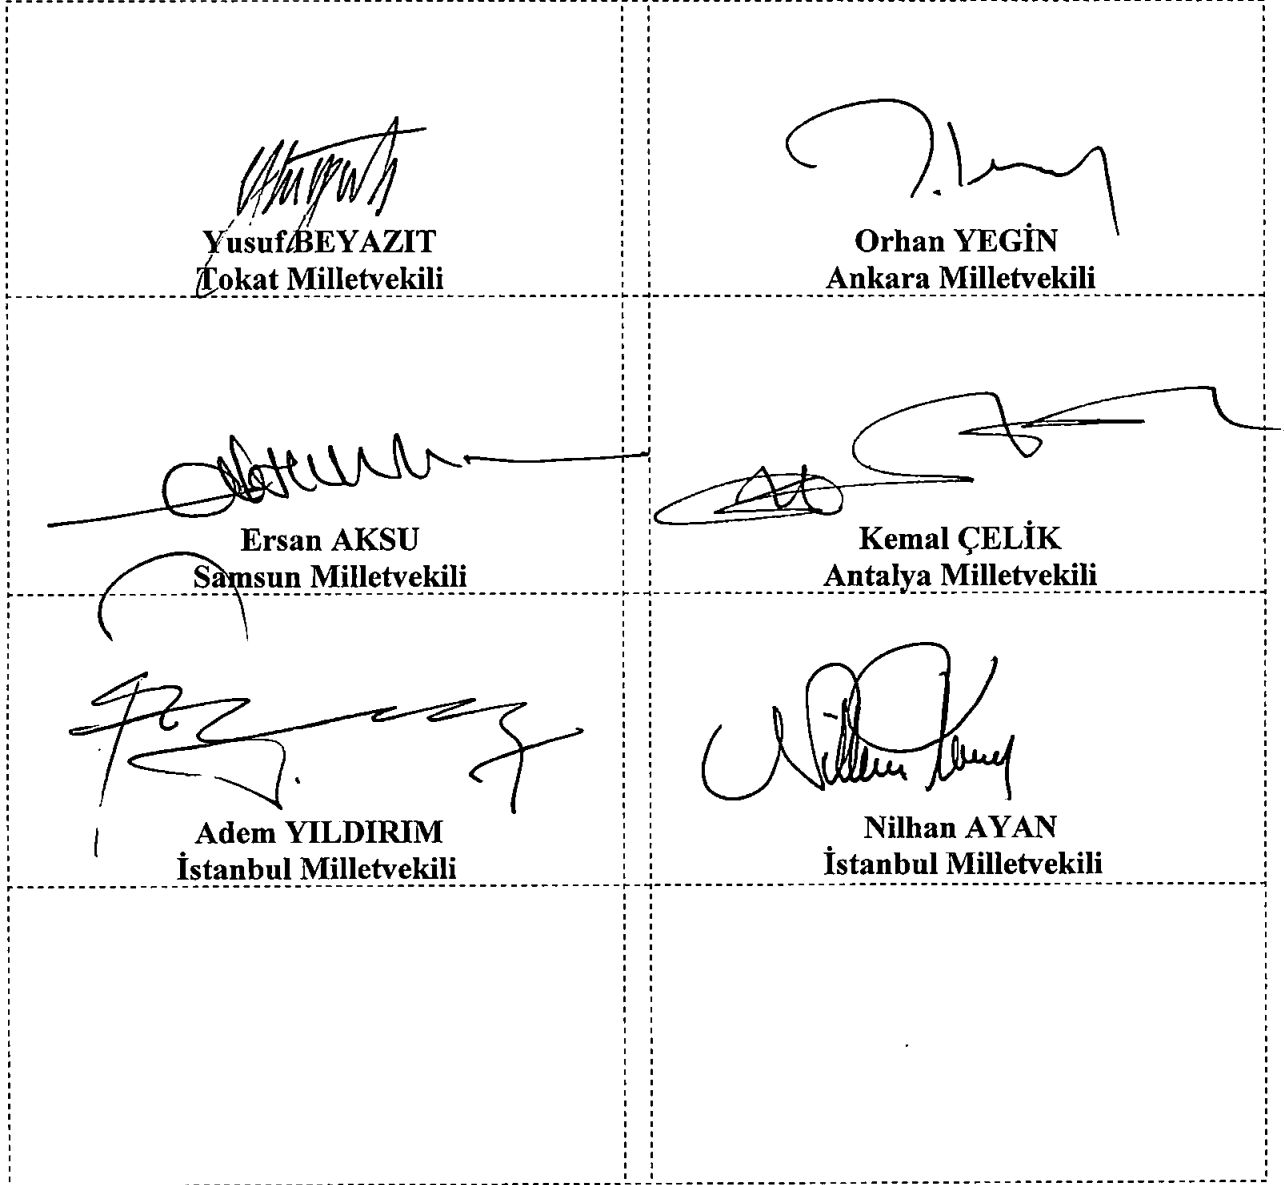 Yusuf BEYAZIT
Tokat Milletvekili
Orhan YEGİN
Ankara Milletvekili
Ersan AKSU
Samsun Milletvekili
Kemal ÇELİK
Antalya Milletvekili
Adem YILDIRIM
İstanbul Milletvekili
Nilhan AYAN
İstanbul Milletvekili